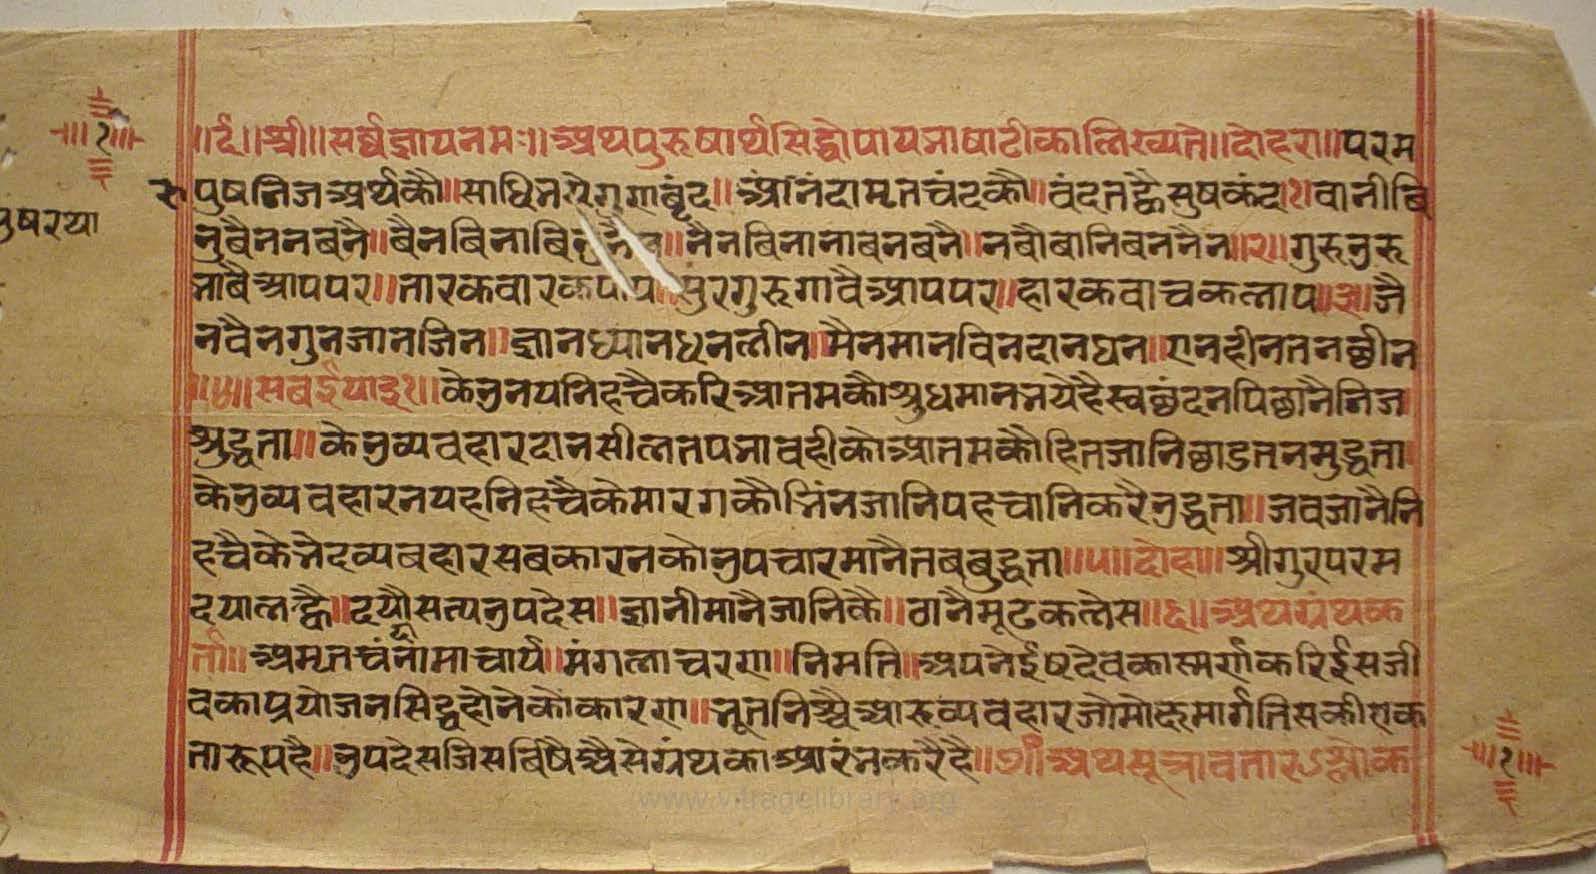 ॥र्द॥॥श्री॥सर्वज्ञायनमः॥अथपुरुषार्थसिद्धोपायभाषाटीकालिख्यते॥दोहरा॥परम
पुरुषनिजअर्थकौ॥साधिभएगुणबृंद॥आनंदामृतचंदकौ॥वंदतह्वैसुषकंद॥१॥बानीबि
नुबैननबनै॥बैनबिनाबिनुनैन॥नैनबिनानाबनबनै॥नबौबानिबननैन॥२॥गुरुउरु
भाबैआपपर॥तारकवारकपाप॥सुरगुरुगावैआपपर॥हारकवाचकलाप॥३॥जै
नवैनगुनजानजिन॥ज्ञानध्यानधनलीन॥मैनमानबिनदानघन॥एनहीनतनछीन
॥४॥सबईया३१॥केउनयनिहचैकरिआतमकौशुधमानभयेहैस्वछंदनपिछानैनिज
शुद्धता॥केउव्यवहारदानसीलतपभावहीकोआतमकौहितजानिछाडतनमुद्धता
केउव्यवहारनयहनिहचैकेमारगकौभिंनजानिपहचानिकरैउद्धता॥जवजानैनि
हचैकेभैदव्यबहारसबकारनकोउपचारमानैतबबुद्धता॥५॥दोहा॥श्रीगुरपरम
दयालह्वै॥दयौसत्यउपदेस॥ज्ञानीमानैजानिकै॥ठानैमूढकलेस॥६॥अथग्रंथक
र्ता॥अमृतचंद्रनामाचार्य॥मंगलाचरण॥निमति॥अपनेईषदेवकास्मर्णकरिईसजी
वकाप्रयोजनसिद्धहोनेकौकारण॥भूतनिश्चैआरुव्यवहारजोमोक्षमार्गतिसकीएक
तारूपहै॥उपदेसजिसबिषैअैसेग्रंथकाआरंभकरैहै॥७॥अथसूत्रावतारश्लोक
www.vitragelibrary.org